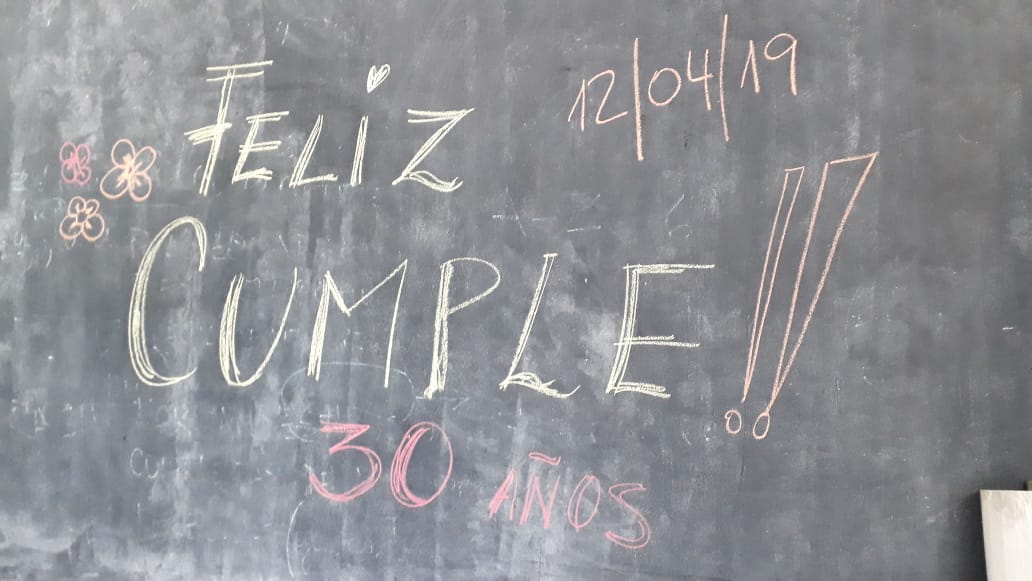 12/04/19
FELiZ
CUMPLE!!
30 AÑOS